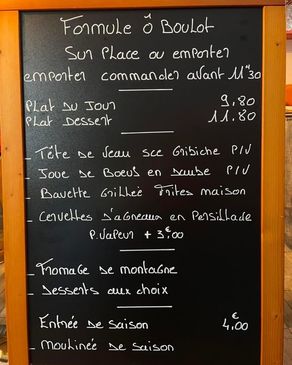 Formule Ô Boulot
Sur Place ou emporter
emporter commander avant 11H30
Plat du Jour 9.80
Plat Dessert 11.80
_ Tête de Veau sce Gribiche P/V
_ Joue de Boeuf en Daube P/V
_ Bavette Grillée Frites maison
_ Cervelles d'agneaux en Persillade
P.Vapeur + 3,€00
_ Fromage de montagne
_ Desserts aux choix
Entrée de saison 4,€00
_ Moulinée de saison